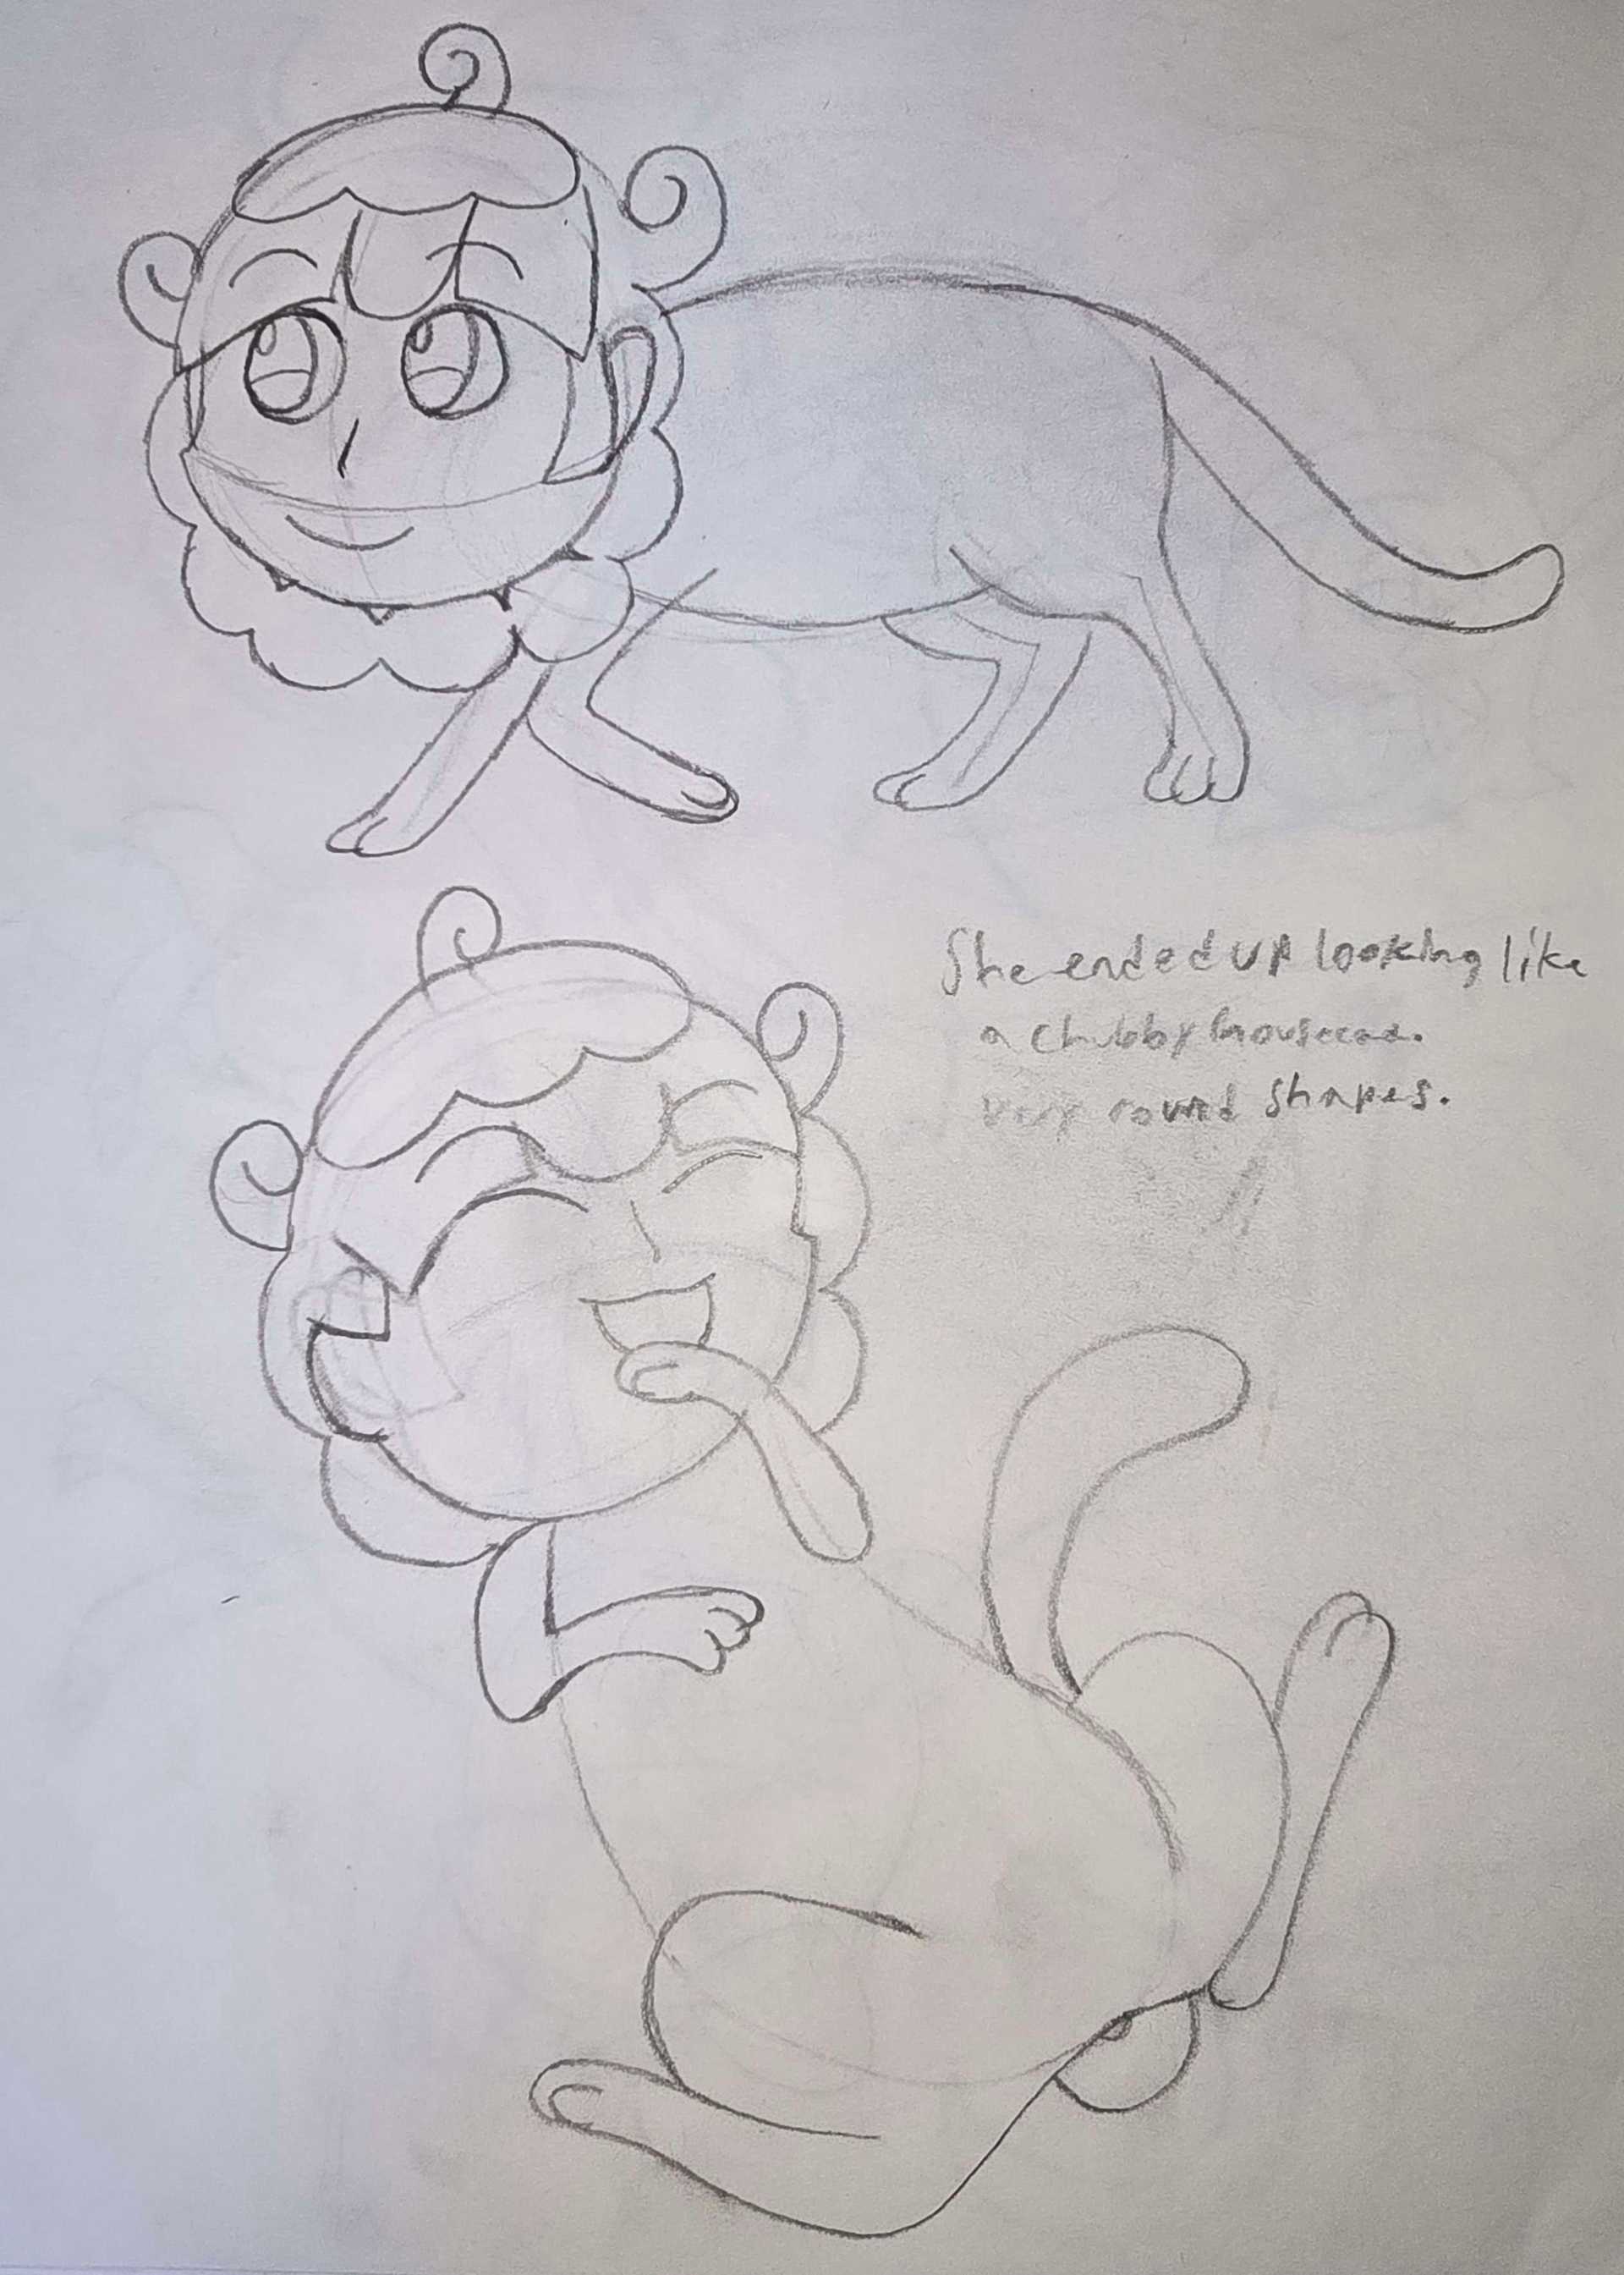 She ended up looking like
a chubby housecat.
very round shapes.